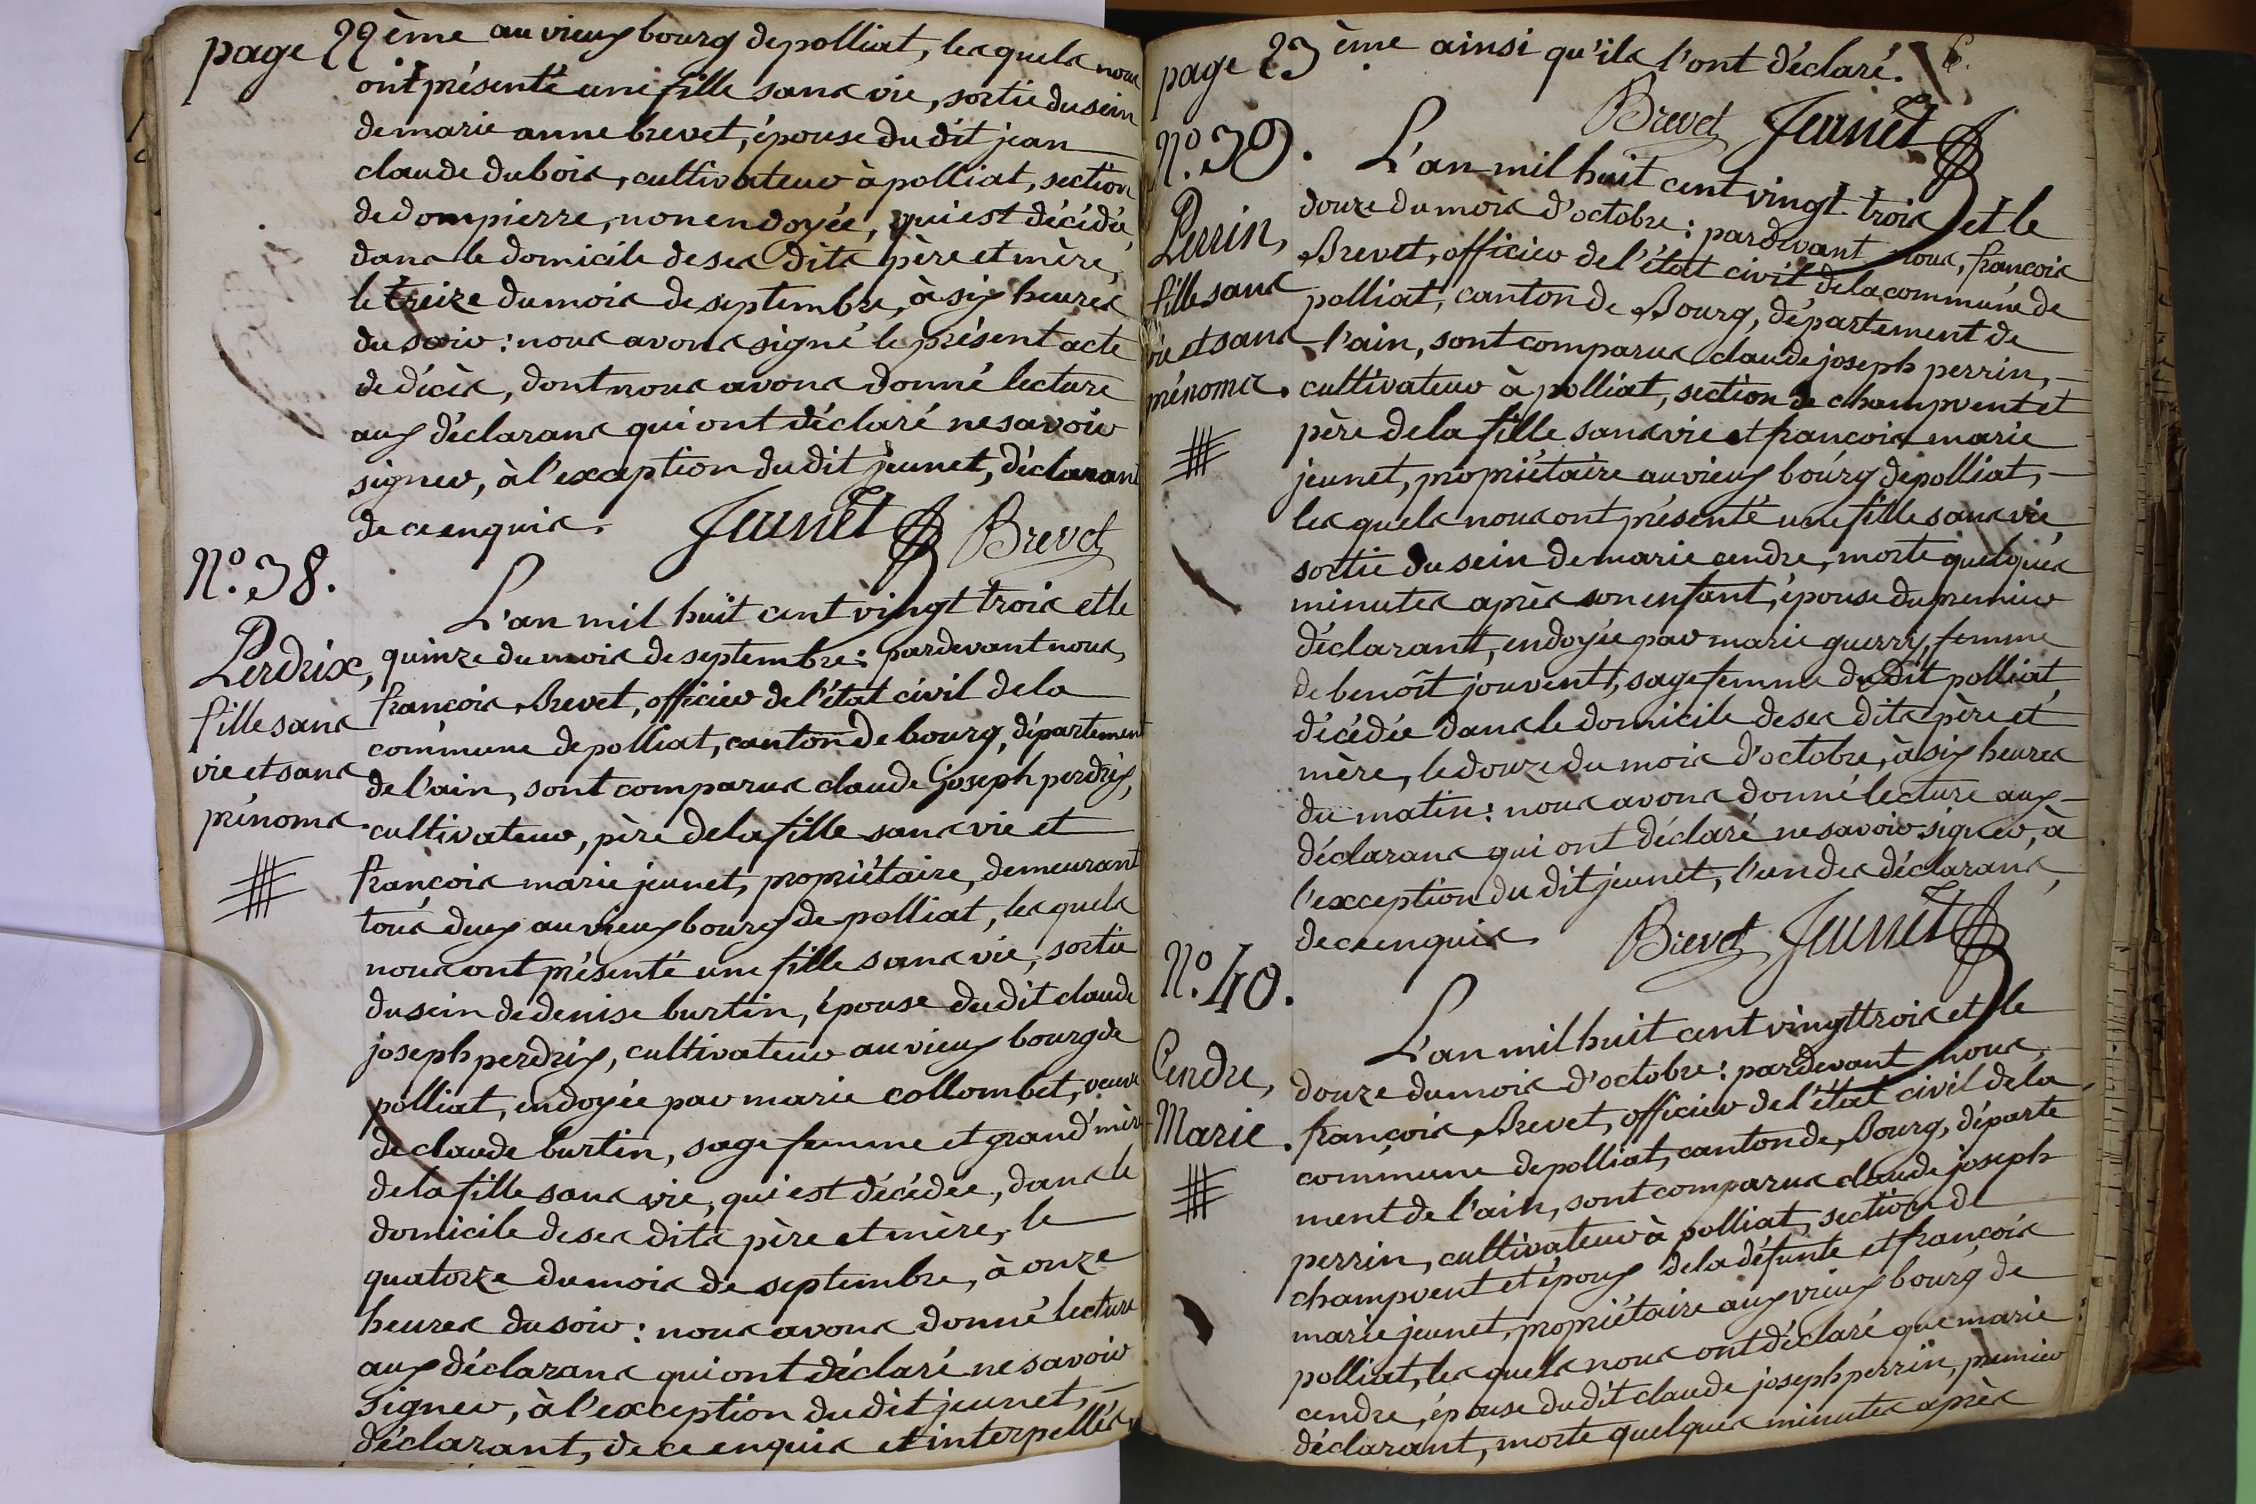 page 22ème au vieux bourg de polliat, les quels nous
ont présenté une fille sans vie, sortie du sein
de marie anne brevet, épouse du dit jean
claude dubois, cultivateur à polliat, section
de dompierre, non endoyée, qui est décédée,
dans le domicile de ses dits père et mère,
le treize du mois de septembre, à six heures
du soir : nous avons signé le présent acte
de décès, dont nous avons donné lecture
aux déclarans qui ont déclaré ne savoir
signer, à l'exception du dit jeunet, déclarant
de ce enquis. Jeunet Brevet
N.º 38.
Perdrix,
fille sans
vie et sans
prénoms.
L'an mil huit cent vingt trois et le
quinze du mois de septembre : pardevant nous,
françois Brevet, officier de l'état civil de la
commune de polliat, canton de bourg, département
de l'ain, sont comparus claude joseph perdrix,
cultivateur, père de la fille sans vie et
françois marie jeunet, propriétaire, demeurant
tous deux au vieux bourg de polliat, les quels
nous ont présenté une fille sans vie, sortie
du sein de denise burtin, épouse du dit claude
joseph perdrix, cultivateur au vieux bourg de
polliat, endoyée par marie collombet, veuve
de claude burtin, sage femme et grand'mère
de la fille sans vie, qui est décédée, dans le
domicile de ses dits père et mère, le
quatorze du mois de septembre, à onze
heures du soir : nous avons donné lecture
aux déclarans qui ont déclaré ne savoir
signer, à l'exception du dit jeunet,
déclarant, de ce enquis et interpellés
page 23ème ainsi qu'ils l'ont déclaré.
Brevet Jeunet
N.º 39.
Perrin,
fille sans
vie et sans
prénoms.
L'an mil huit cent vingt trois et le
douze du mois d'octobre : pardevant nous, françois
Brevet, officier de l'état civil de la commune de
polliat, canton de Bourg, département de
l'ain, sont comparus claude joseph perrin,
cultivateur à polliat, section de champvent et
père de la fille sans vie et françois marie
jeunet, propriétaire au vieux bourg de polliat,
les quels nous ont présenté une fille sans vie,
sortie du sein de marie cendre, morte quelques
minutes après son enfant, épouse du premier
déclarant, endoyée par marie guerry, femme
de benoît jouvent, sage femme du dit polliat,
décédée dans le domicile de ses dits père et
mère, le douze du mois d'octobre, à six heures
du matin : nous avons donné lecture aux
déclarans qui ont déclaré ne savoir signer, à
l'exception du dit jeunet, l'un des déclarans,
de ce enquis. Brevet Jeunet
N.º 40.
Cendre,
Marie.
L'an mil huit cent vingt trois et le
douze du mois d'octobre : pardevant nous,
françois Brevet, officier de l'état civil de la
commune de polliat, canton de Bourg, départe
ment de l'ain, sont comparus claude joseph
perrin, cultivateur à polliat, section de
champvent et époux de la défunte et françois
marie jeunet, propriétaire aux vieux bourg de
polliat, les quels nous ont déclaré que marie
cendre, épouse du dit claude joseph perrin, premier
déclarant, morte quelques minutes après